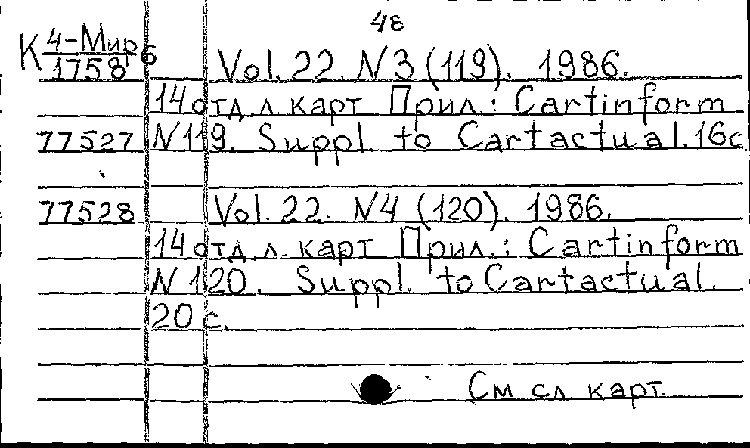 48
К 4-Мир6
1758
Vol. 22. N3 (119). 1986.
14 отд. л. карт Прил.: Cartinform
77527 N119. Suppl. to Cartactual. 16с
77528 Vol. 22. N4 (120). 1986.
14 отд. л. карт Прил.: Cartinform
N 120. Suppl. to Cartactual.
20 с.
См сл карт.